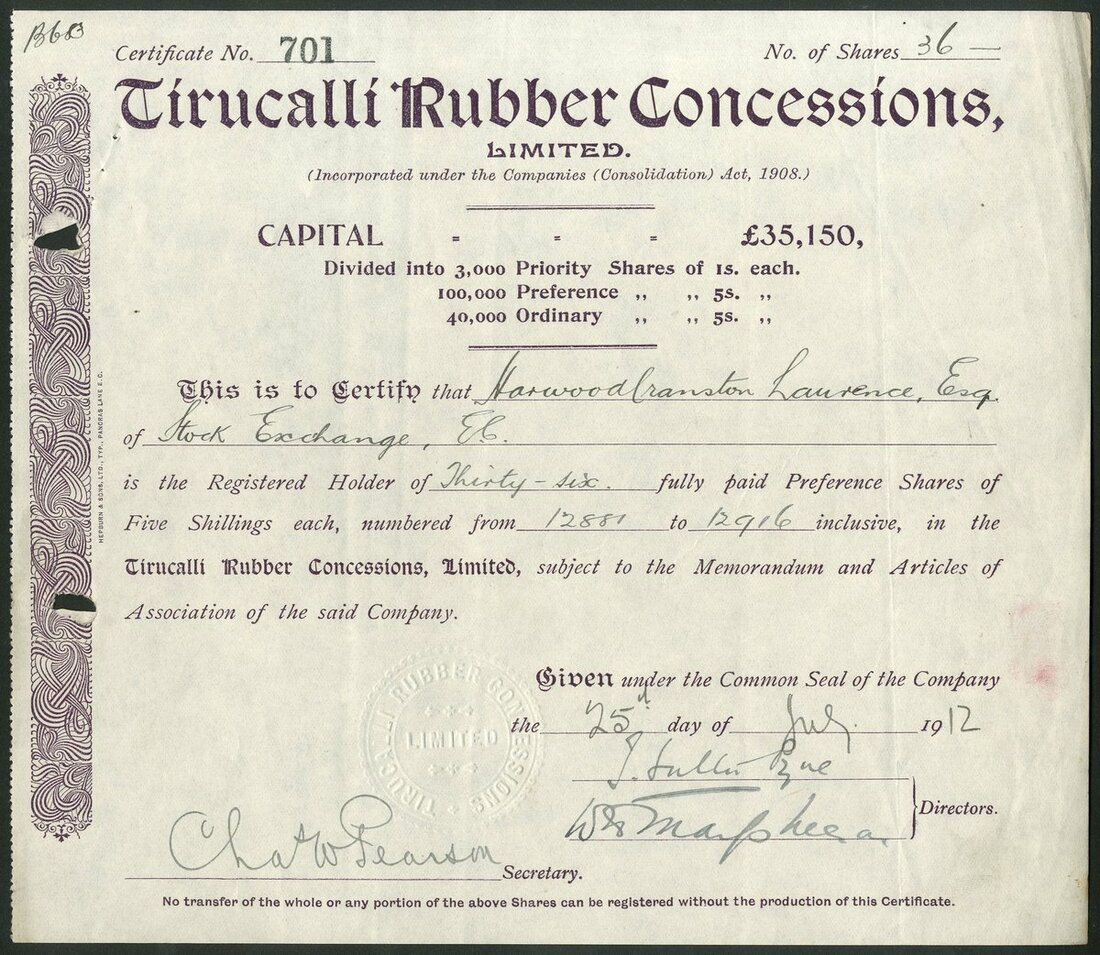 B683
Certificate No. 701 No. of Shares 36 —
Tirucalli Rubber Concessions,
LIMITED.
(Incorporated under the Companies (Consolidation) Act, 1908.)
CAPITAL = = = £35,150,
Divided into 3,000 Priority Shares of 1s. each.
100,000 Preference ,, ,, 5s. ,,
40,000 Ordinary ,, ,, 5s. ,,
This is to Certify that Harwood Cranston Laurence, Esq.
of Stock Exchange, E.C.
is the Registered Holder of Thirty-six. fully paid Preference Shares of
Five Shillings each, numbered from 12881 to 12916 inclusive, in the
Tirucalli Rubber Concessions, Limited, subject to the Memorandum and Articles of
Association of the said Company.
HEPBURN & SONS, LTD., TYP., PANCRAS LANE E.C.
Given under the Common Seal of the Company
the 25th day of July 1912
TIRUCALLI RUBBER CONCESSIONS
LIMITED
Directors.
Chas W Pearson
Secretary.
No transfer of the whole or any portion of the above Shares can be registered without the production of this Certificate.